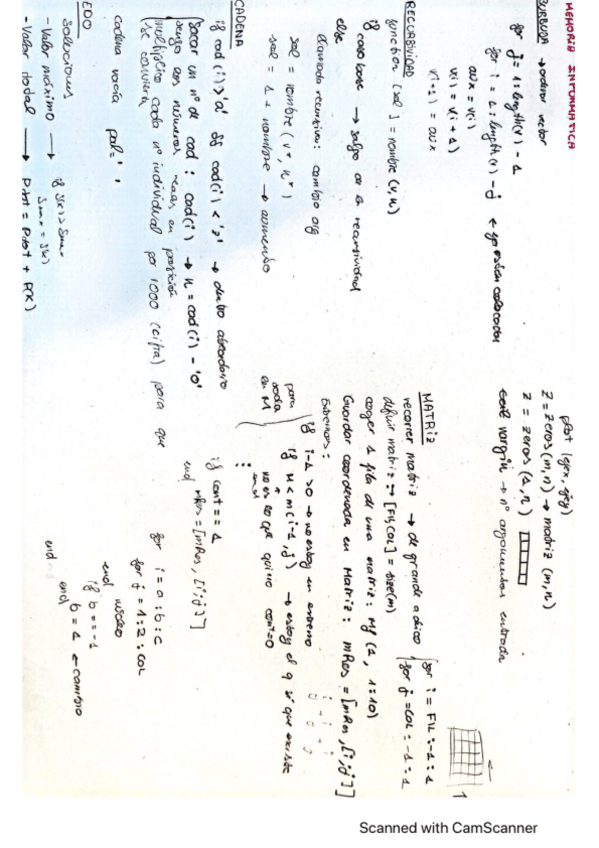 MEMORIA INFORMATICA
BURBUJA → ordenar vector
for j = 1:length(v) - 1
for i = 1:length(v) - j ← ya están colocados
aux = v(i)
v(i) = v(i+1)
v(i+1) = aux
RECURSIVIDAD
function [sal] = nombre (v, n)
if
caso base → salgo de la recursividad
else
llamada recursiva: cambio arg
sal = nombre (v*, n*)
sal = 1 + nombre → aumento
CADENA
if cad(i) >'a' && cad(i) < 'z' → dentro abecedario
Sacar un nº de cad: cad(i) → n = cad(i) - '0'
multiplico cada nº individual por 1000 (cifra) para que
se convierta
cadena vacía pal = ' '
EDO
Soluciones
- Valor máximo → if S(k) > Smax
Smax = S(k)
- Valor total → Ptot = Ptot + P(k)
plot (ejex, ejey)
Z = zeros(m,n) → matriz (m,n)
Z = zeros (1,n)
vargin → nº argumentos entrada
MATRIZ
recorrer matriz → de grande a chico
for i = FIL:-1:1
for j = COL:-1:1
definir matriz → [FIL,COL] = size(m)
coger 1 fila de una matriz: Mf (1, 1:10)
Guardar coordenada en Matriz: mRes = [mRes, [i;j]]
Extremos:
if i-1 > 0 → no estoy en extremo
if M < m(i-1, j) → estoy el q sí que existe
no es lo que quiero cont=0
end
para
en M
if cont == 1
mRes = [mRes, [i;j]]
end
for i = a:b:c
for j = 1:2:COL
end
if b == -1
b = 1 ← cambio
end
end
Scanned with CamScanner